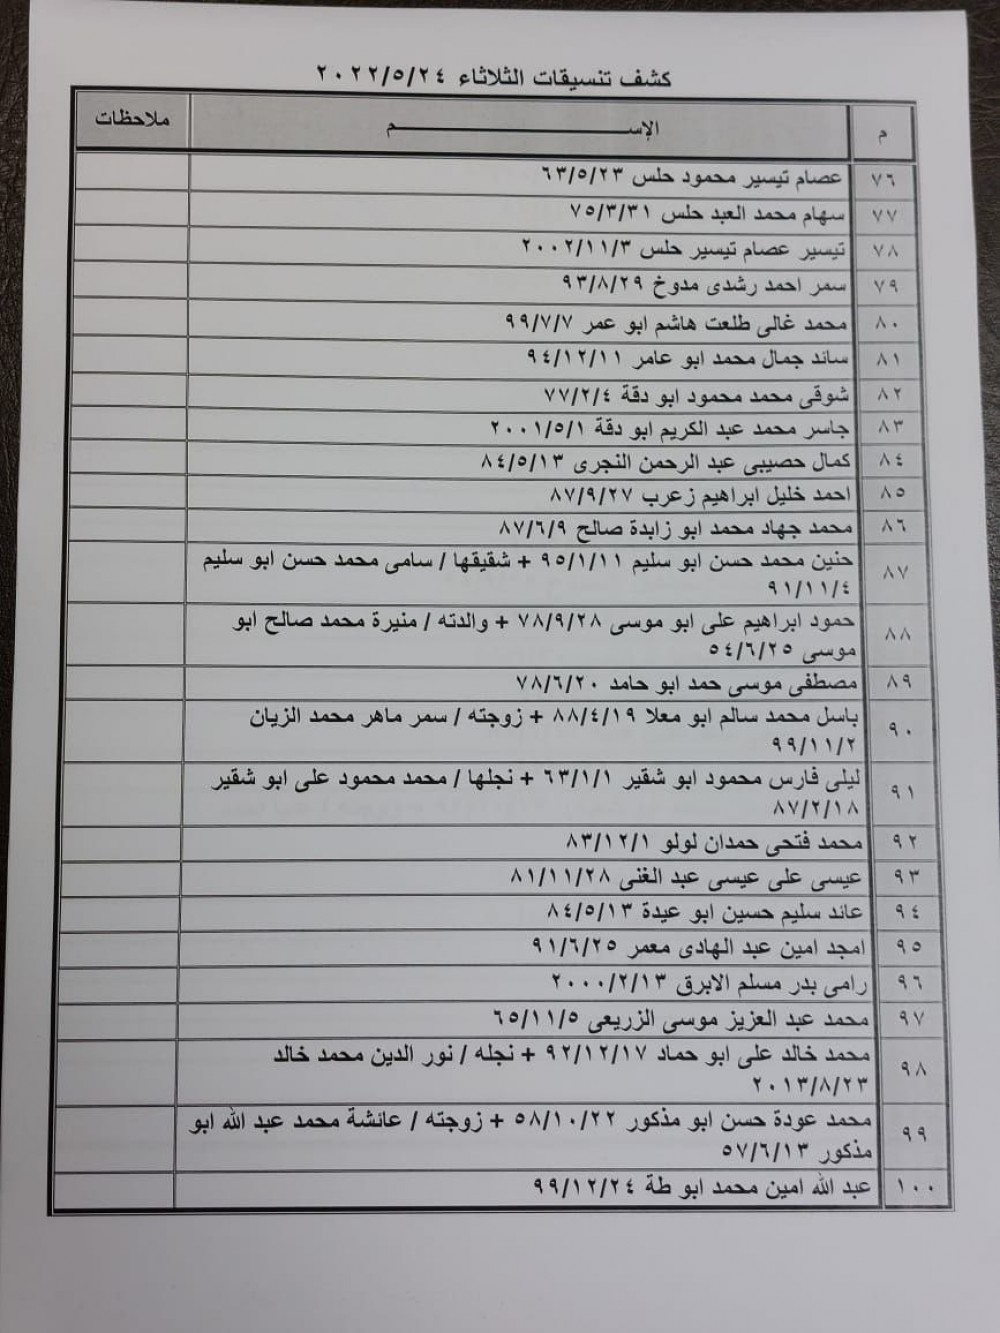 كشف تنسيقات الثلاثاء ٢٠٢٢/٥/٢٤
م الإســـــــــــم ملاحظات
٧٦ عصام تيسير محمود حلس ٦٣/٥/٢٣
٧٧ سهام محمد العبد حلس ٧٥/٣/٣١
٧٨ تيسير عصام تيسير حلس ٢٠٠٢/١١/٣
٧٩ سمر احمد رشدى مدوخ ٩٣/٨/٢٩
٨٠ محمد غالى طلعت هاشم ابو عمر ٩٩/٧/٧
٨١ سائد جمال محمد ابو عامر ٩٤/١٢/١١
٨٢ شوقى محمد محمود ابو دقة ٧٧/٢/٤
٨٣ جاسر محمد عبد الكريم ابو دقة ٢٠٠١/٥/١
٨٤ كمال حصيبى عبد الرحمن النجرى ٨٤/٥/١٣
٨٥ احمد خليل ابراهيم زعرب ٨٧/٩/٢٧
٨٦ محمد جهاد محمد ابو زابدة صالح ٨٧/٦/٩
٨٧ حنين محمد حسن ابو سليم ٩٥/١/١١ + شقيقها / سامى محمد حسن ابو سليم
٩١/١١/٤
٨٨ حمود ابراهيم على ابو موسى ٧٨/٩/٢٨ + والدته / منيرة محمد صالح ابو
موسى ٥٤/٦/٢٥
٨٩ مصطفى موسى حمد ابو حامد ٧٨/٦/٢٠
٩٠ باسل محمد سالم ابو معلا ٨٨/٤/١٩ + زوجته / سمر ماهر محمد الزيان
٩٩/١١/٢
٩١ ليلى فارس محمود ابو شقير ٦٣/١/١ + نجلها / محمد محمود على ابو شقير
٨٧/٢/١٨
٩٢ محمد فتحى حمدان لولو ٨٣/١٢/١
٩٣ عيسى على عيسى عبد الغنى ٨١/١١/٢٨
٩٤ عائد سليم حسين ابو عيدة ٨٤/٥/١٣
٩٥ امجد امين عبد الهادى معمر ٩١/٦/٢٥
٩٦ رامى بدر مسلم الابرق ٢٠٠٠/٢/١٣
٩٧ محمد عبد العزيز موسى الزريعى ٦٥/١١/٥
٩٨ محمد خالد على ابو حماد ٩٢/١٢/١٧ + نجله / نور الدين محمد خالد
٢٠١٣/٨/٢٣
٩٩ محمد عودة حسن ابو مذكور ٥٨/١٠/٢٢ + زوجته / عائشة محمد عبد الله ابو
مذكور ٥٧/٦/١٣
١٠٠ عبد الله امين محمد ابو طة ٩٩/١٢/٢٤